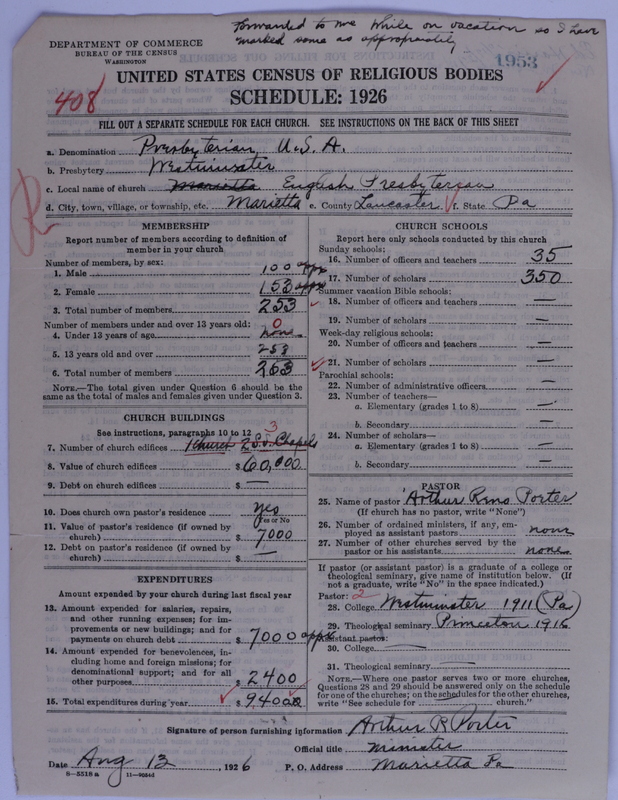 Forwarded to me while on vacation so I have
marked some as appropriately
DEPARTMENT OF COMMERCE
BUREAU OF THE CENSUS
WASHINGTON
1953
UNITED STATES CENSUS OF RELIGIOUS BODIES
408
SCHEDULE: 1926
FILL OUT A SEPARATE SCHEDULE FOR EACH CHURCH. SEE INSTRUCTIONS ON THE BACK OF THIS SHEET
a. Denomination Presbyterian, U.S.A.
b. Presbytery Westminster
c. Local name of church Marietta English Presbyterian
d. City, town, village, or township, etc. Marietta e. County Lancaster f. State Pa
MEMBERSHIP
Report number of members according to definition of
member in your church
Number of members, by sex:
1. Male 100 appx
2. Female 153 appx
3. Total number of members 253
Number of members under and over 13 years old:
0
4. Under 13 years of age none
5. 13 years old and over 253
6. Total number of members 263
NOTE.—The total given under Question 6 should be the
same as the total of males and females given under Question 3.
CHURCH BUILDINGS
See instructions, paragraphs 10 to 12
3
7. Number of church edifices 1 church 2 S.S. Chapels
8. Value of church edifices $ 60,000
9. Debt on church edifices $ —
10. Does church own pastor's residence yes
(Yes or No
11. Value of pastor's residence (if owned by
church) $ 7000
12. Debt on pastor's residence (if owned by
church) $ —
EXPENDITURES
Amount expended by your church during last fiscal year
13. Amount expended for salaries, repairs,
and other running expenses; for im-
provements or new buildings; and for
payments on church debt $ 7000 appx
14. Amount expended for benevolences, in-
cluding home and foreign missions; for
denominational support; and for all
other purposes $ 2400
15. Total expenditures during year $ 9400.00
CHURCH SCHOOLS
Report here only schools conducted by this church
Sunday schools:
16. Number of officers and teachers 35
17. Number of scholars 350
Summer vacation Bible schools:
18. Number of officers and teachers —
19. Number of scholars —
Week-day religious schools:
20. Number of officers and teachers —
21. Number of scholars —
Parochial schools:
22. Number of administrative officers —
23. Number of teachers—
a. Elementary (grades 1 to 8) —
b. Secondary —
24. Number of scholars—
a. Elementary (grades 1 to 8) —
b. Secondary —
PASTOR
25. Name of pastor Arthur Reno Porter
(If church has no pastor, write "None")
26. Number of ordained ministers, if any, em-
ployed as assistant pastors none
27. Number of other churches served by the
pastor or his assistants none
If pastor (or assistant pastor) is a graduate of a college or
theological seminary, give name of institution below. (If
not a graduate, write "No" in the space indicated.)
Pastor: 2
28. College Westminster 1911 (Pa)
29. Theological seminary Princeton 1916
Assistant pastor:
30. College —
31. Theological seminary —
NOTE.—Where one pastor serves two or more churches,
Questions 28 and 29 should be answered only on the schedule
for one of the churches; on the schedules for the other churches,
write "See schedule for church."
Signature of person furnishing information Arthur R Porter
Official title Minister
Date Aug 13, 1926 P. O. Address Marietta Pa
8—5518 a